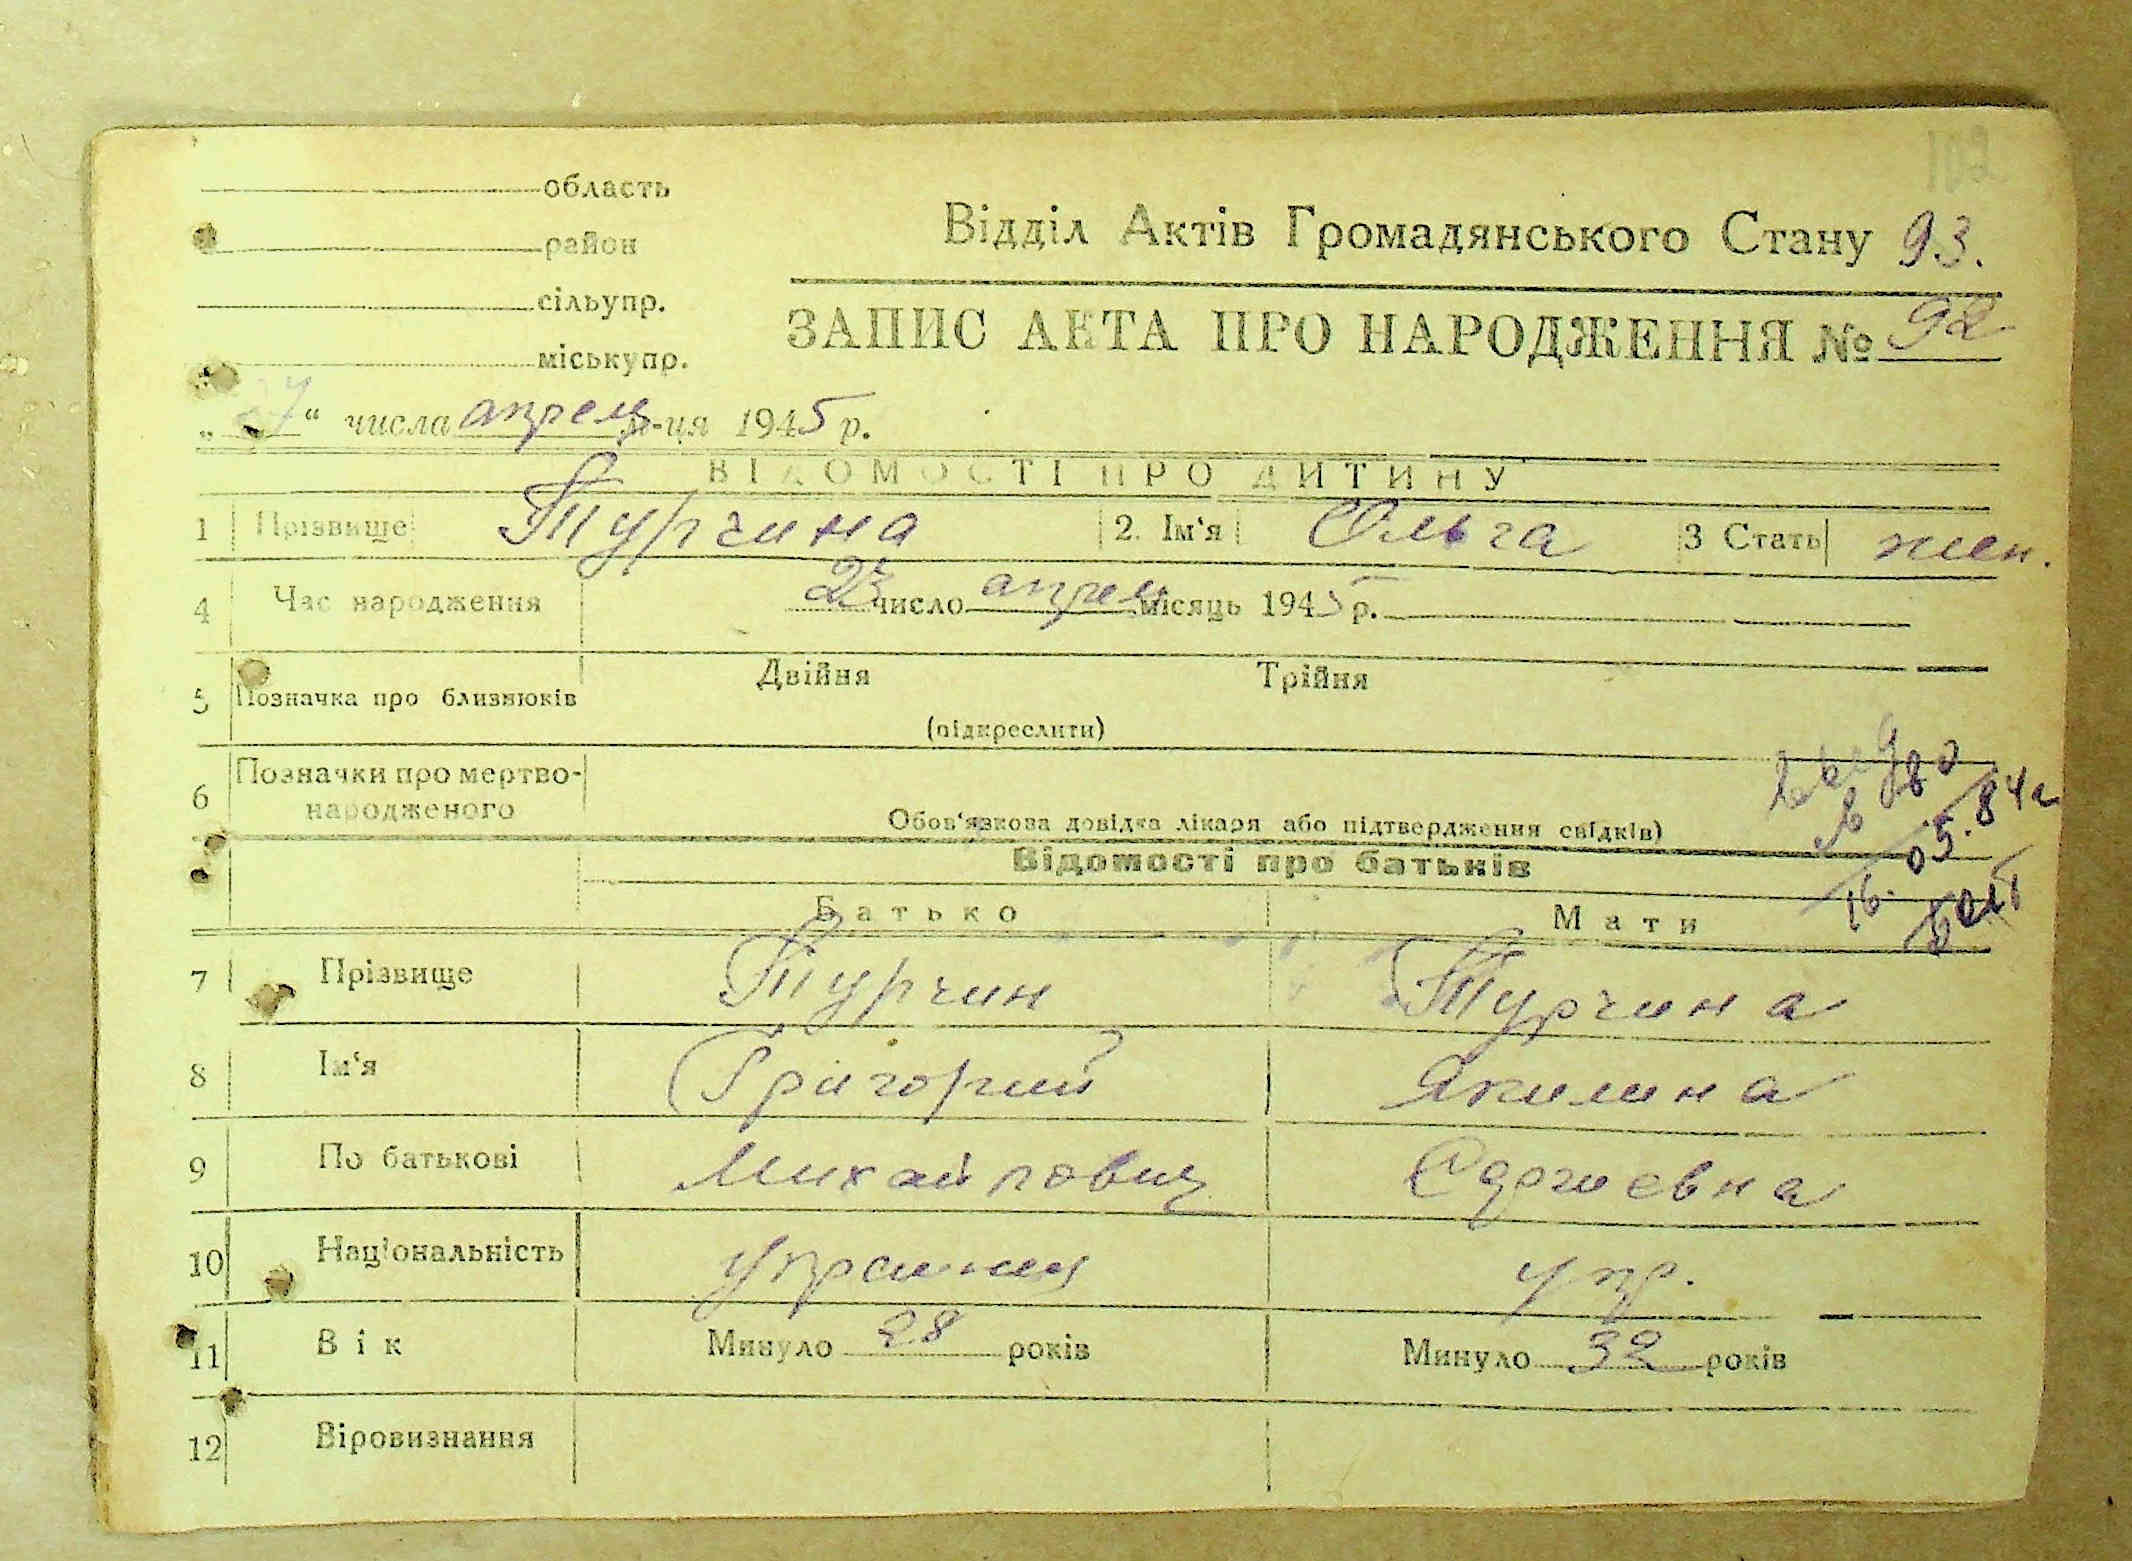 102
область
район
сільупр.
міськупр.
Відділ Актів Громадянського Стану 93.
ЗАПИС АКТА ПРО НАРОДЖЕННЯ № 92
„27“ числа апреля м-ця 1945 р.
ВІДОМОСТІ ПРО ДИТИНУ
1 Прізвище Турчина 2. Ім‘я Ольга 3 Стать жен.
4 Час народження 23 число апреля місяць 1945 р.
5 Позначка про близнюків Двійня Трійня
(підкреслити)
6 Позначки про мертво-
народженого
Обов‘язкова довідка лікаря або підтвердження свідків)
16.05.84г
Відомості про батьків
Батько Мати
7 Прізвище Турчин Турчина
8 Ім‘я Григорий Якилина
9 По батькові Михайлович Сергиевна
10 Національність украинец укр.
11 Вік Минуло 28 років Минуло 32 років
12 Віровизнання